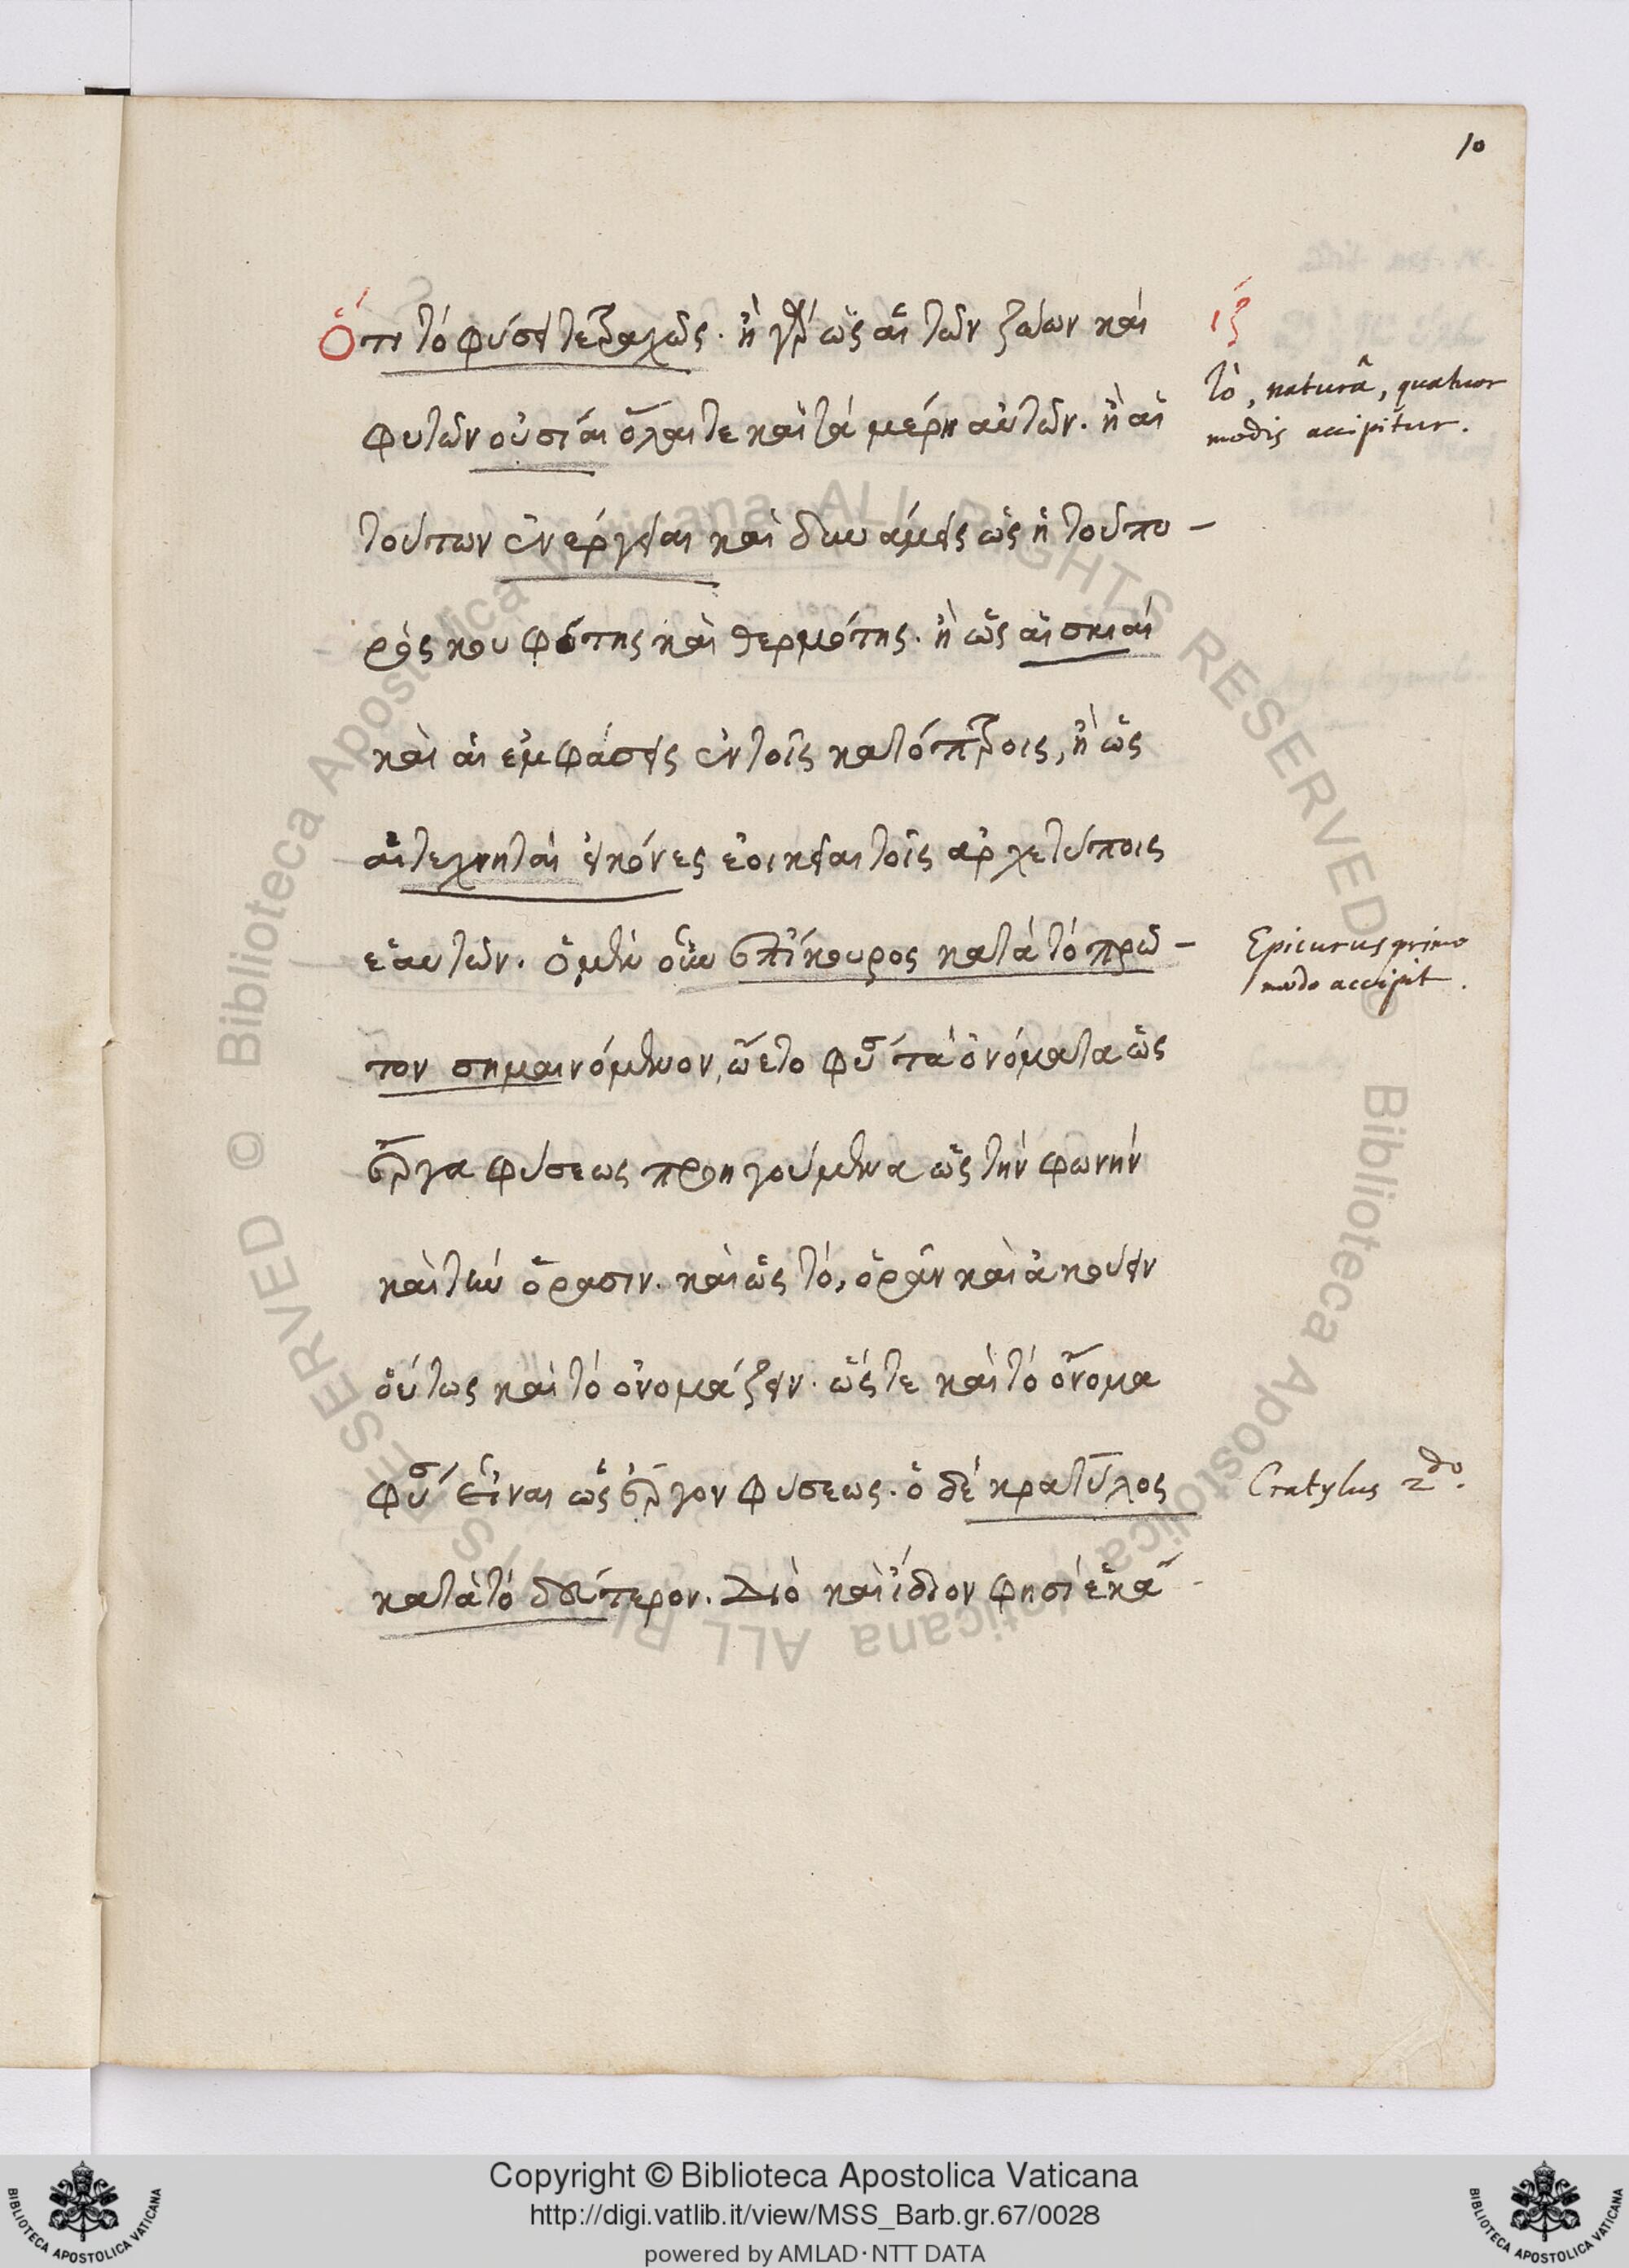 10
Ὅτι τὸ φύσει τετραχῶς. ἢ γὰρ ὡς αἱ τῶν ζώων καὶ
ιζ
φυτῶν οὐσίαι ὅλαι τε καὶ τὰ μέρη αὐτῶν. ἢ αἱ
τὸ, naturâ, quatuor
modis accipitur.
τούτων ἐνέργειαι καὶ δυνάμεις ὡς ἡ τοῦ πυ-
ρὸς κουφότης καὶ θερμότης. ἢ ὡς αἱ σκιαὶ
καὶ αἱ ἐμφάσεις ἐν τοῖς κατόπτροις, ἢ ὡς
αἱ τεχνηταὶ εἰκόνες ἐοικεῖαι τοῖς ἀρχετύποις
ἑαυτῶν. ὁ μὲν οὖν ἐπίκουρος κατὰ τὸ πρῶ-
Epicurus primo
modo accipit.
τον σημαινόμενον, ᾤετο φύσει τὰ ὀνόματα ὡς
ἔργα φύσεως προηγούμενα ὡς τὴν φωνὴν
καὶ τὴν ὅρασιν. καὶ ὡς τὸ, ὁρᾶν καὶ ἀκούειν
οὕτως καὶ τὸ ὀνομάζειν. ὥστε καὶ τὸ ὄνομα
φύσει εἶναι ὡς ἔργον φύσεως. ὁ δὲ κρατύλος
Cratylus 2do.
κατὰ τὸ δεύτερον. Διὸ καὶ ἴδιον φησὶ ἑκά-
Copyright © Biblioteca Apostolica Vaticana
http://digi.vatlib.it/view/MSS_Barb.gr.67/0028
powered by AMLAD·NTT DATA
BIBLIOTECA APOSTOLICA VATICANA
BIBLIOTECA APOSTOLICA VATICANA
© Biblioteca Apostolica Vaticana ALL RIGHTS RESERVED
© Biblioteca Apostolica Vaticana ALL RIGHTS RESERVED